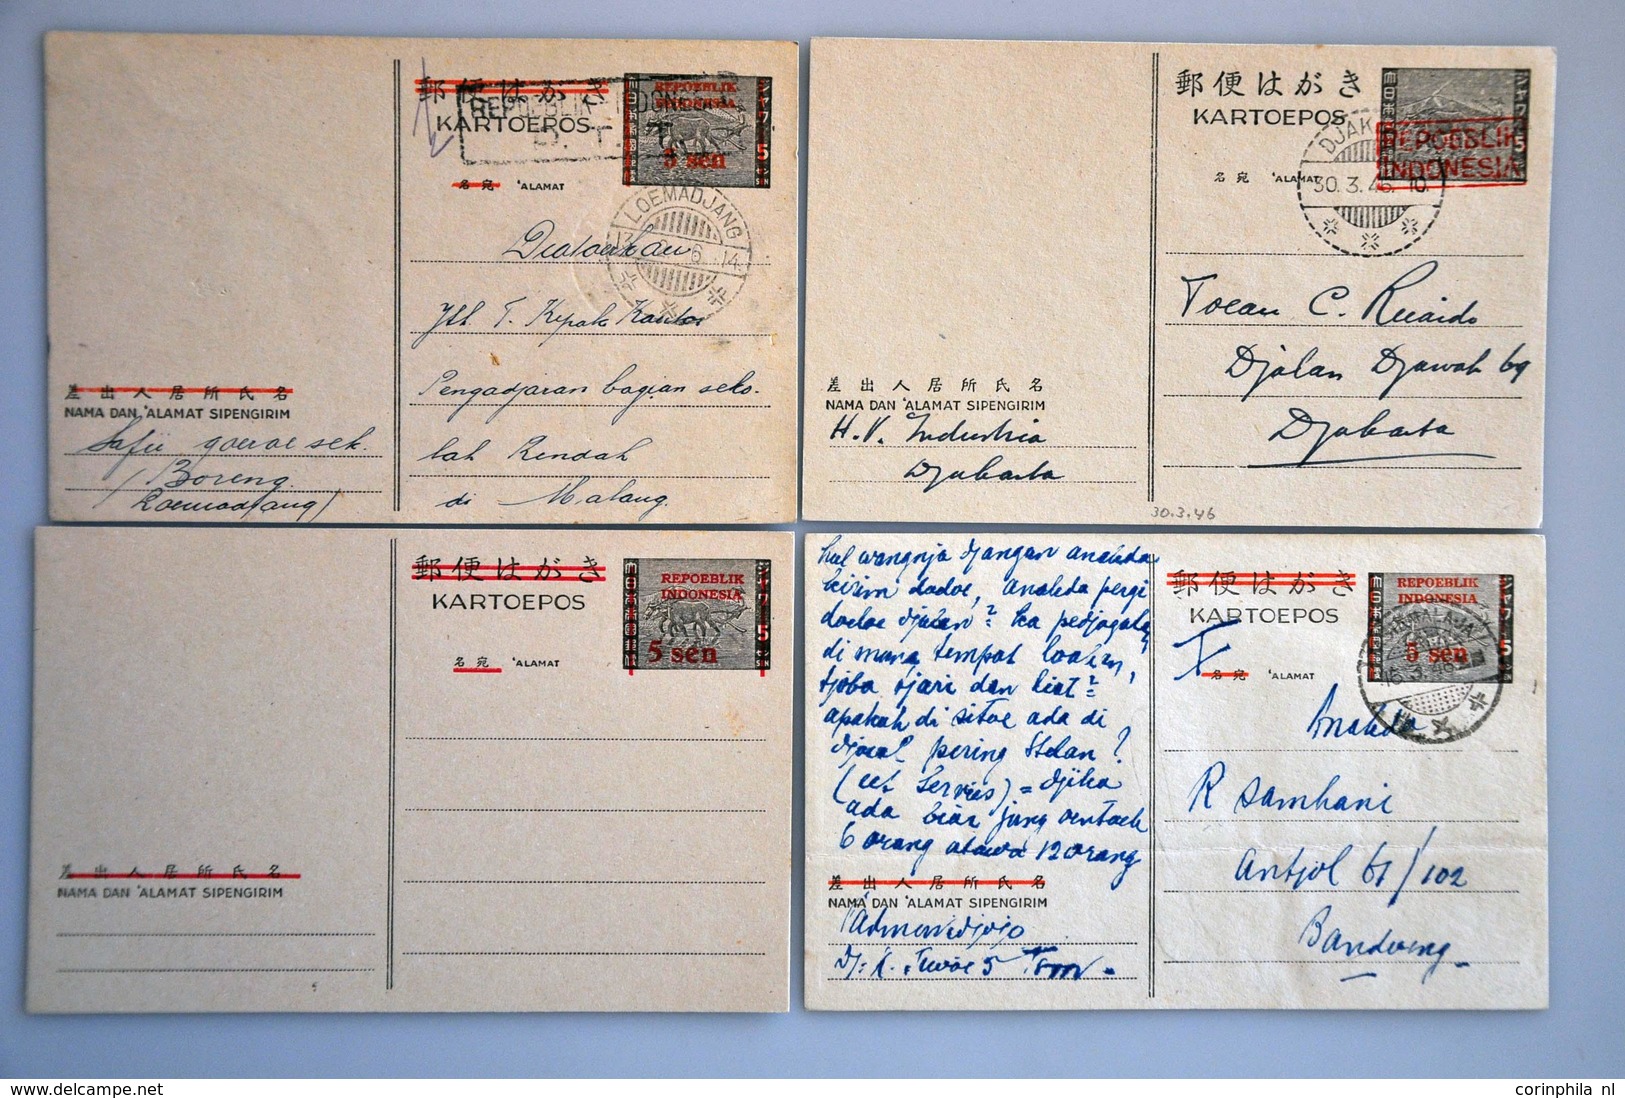 郵便はがき
REPOEBLIK INDONESIA
KARTOEPOS
REPOEBLIK
INDONESIA
5 sen
5
名宛 'ALAMAT
LOEMADJANG
Yth. T. Kepala Kantor
Pengadjaran bagian seko-
lah Rendah
di Malang.
差出人居所氏名
NAMA DAN 'ALAMAT SIPENGIRIM
Safii goeroe sek.
Boreng
Loemadjang
郵便はがき
KARTOEPOS
REPOEBLIK
INDONESIA
5
名宛 'ALAMAT
30.3.46. 10
Toean C. Ricardo
Djalan Djawah 69
Djakarta
差出人居所氏名
NAMA DAN 'ALAMAT SIPENGIRIM
H.V. Industria
Djakarta
30.3.46
郵便はがき
KARTOEPOS
REPOEBLIK
INDONESIA
5 sen
5
名宛 'ALAMAT
差出人居所氏名
NAMA DAN 'ALAMAT SIPENGIRIM
hal wangnja djangan ananda
kirim dadoe, Ananda pergi
di mana tempat
tjoba tjari dan liat²
apakah di sitoe ada di
djoeal pering Stelan?
= djika
ada biar jang oentoek
6 orang atawa 12 orang
差出人居所氏名
NAMA DAN 'ALAMAT SIPENGIRIM
郵便はがき
KARTOEPOS
REPOEBLIK
INDONESIA
5 sen
5
名宛 'ALAMAT
Ananda
R Samhani
Antjol 61/102
Bandoeng
corinphila nl